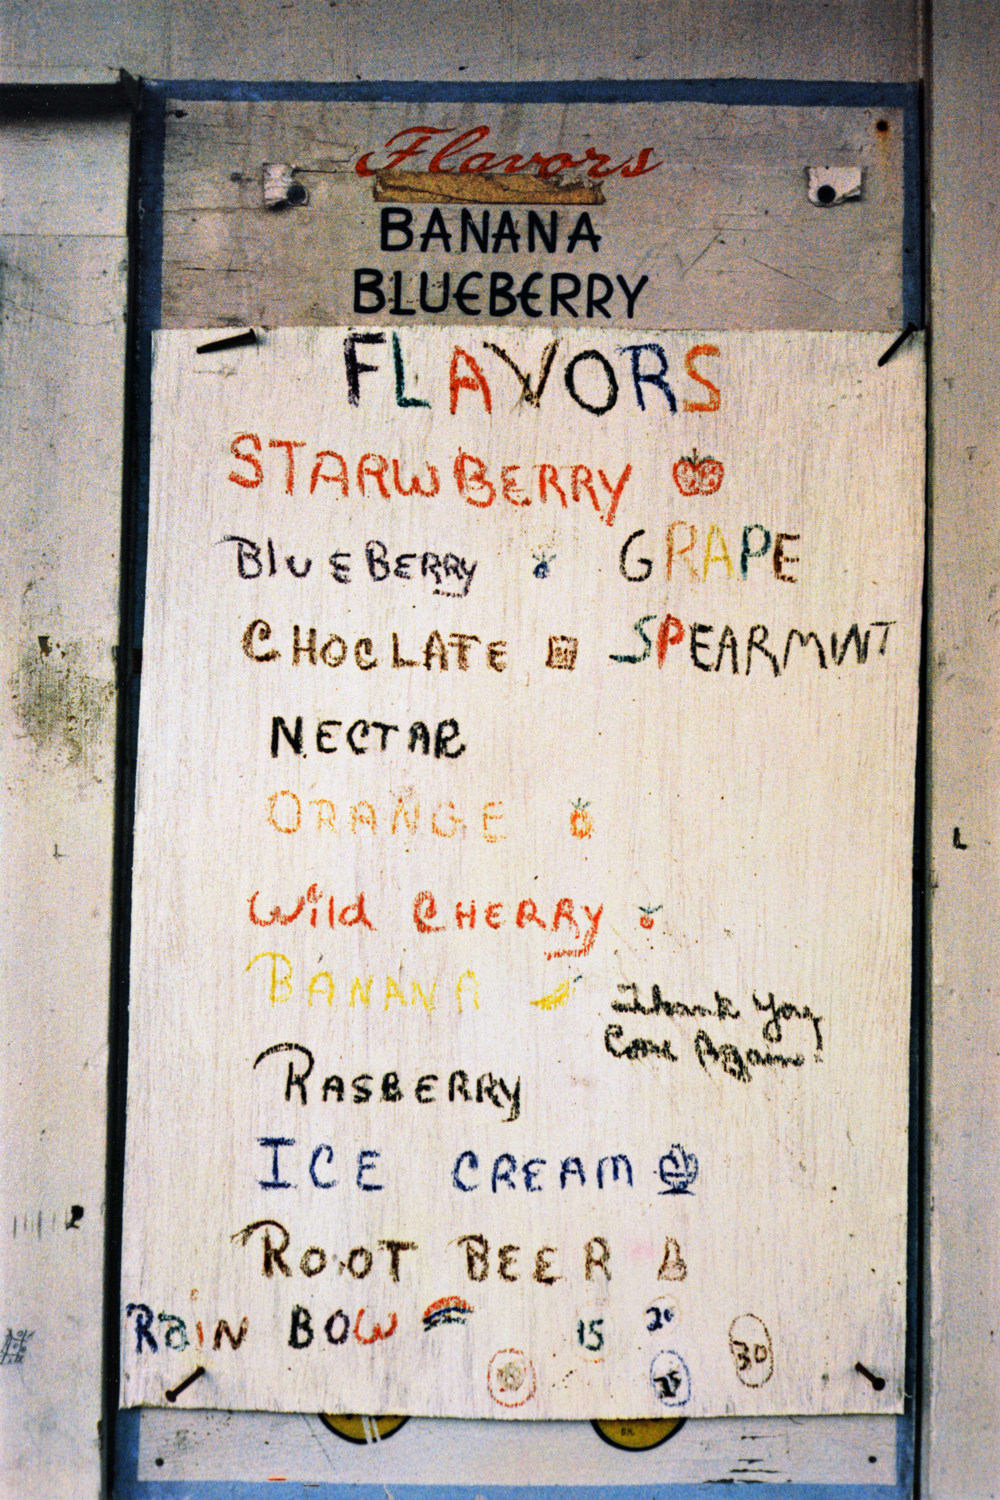 Flavors
BANANA
BLUEBERRY
FLAVORS
STARWBERRY
BLUEBERRY GRAPE
CHOCLATE SPEARMINT
NECTAR
ORANGE
Wild CHERRY
BANANA
Thank You
Come Again
RASBERRY
ICE CREAM
ROOT BEER
RAIN BOW 15 20
25 30